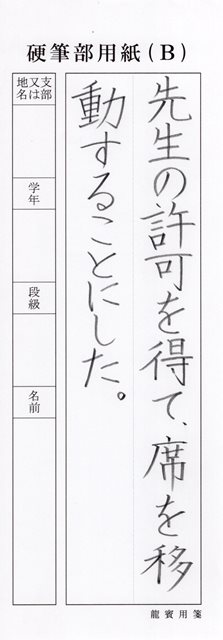 硬筆部用紙(B)
先生の許可を得て、席を移
動することにした。
支部
又は
地名
学年
段級
名前
龍賓用箋